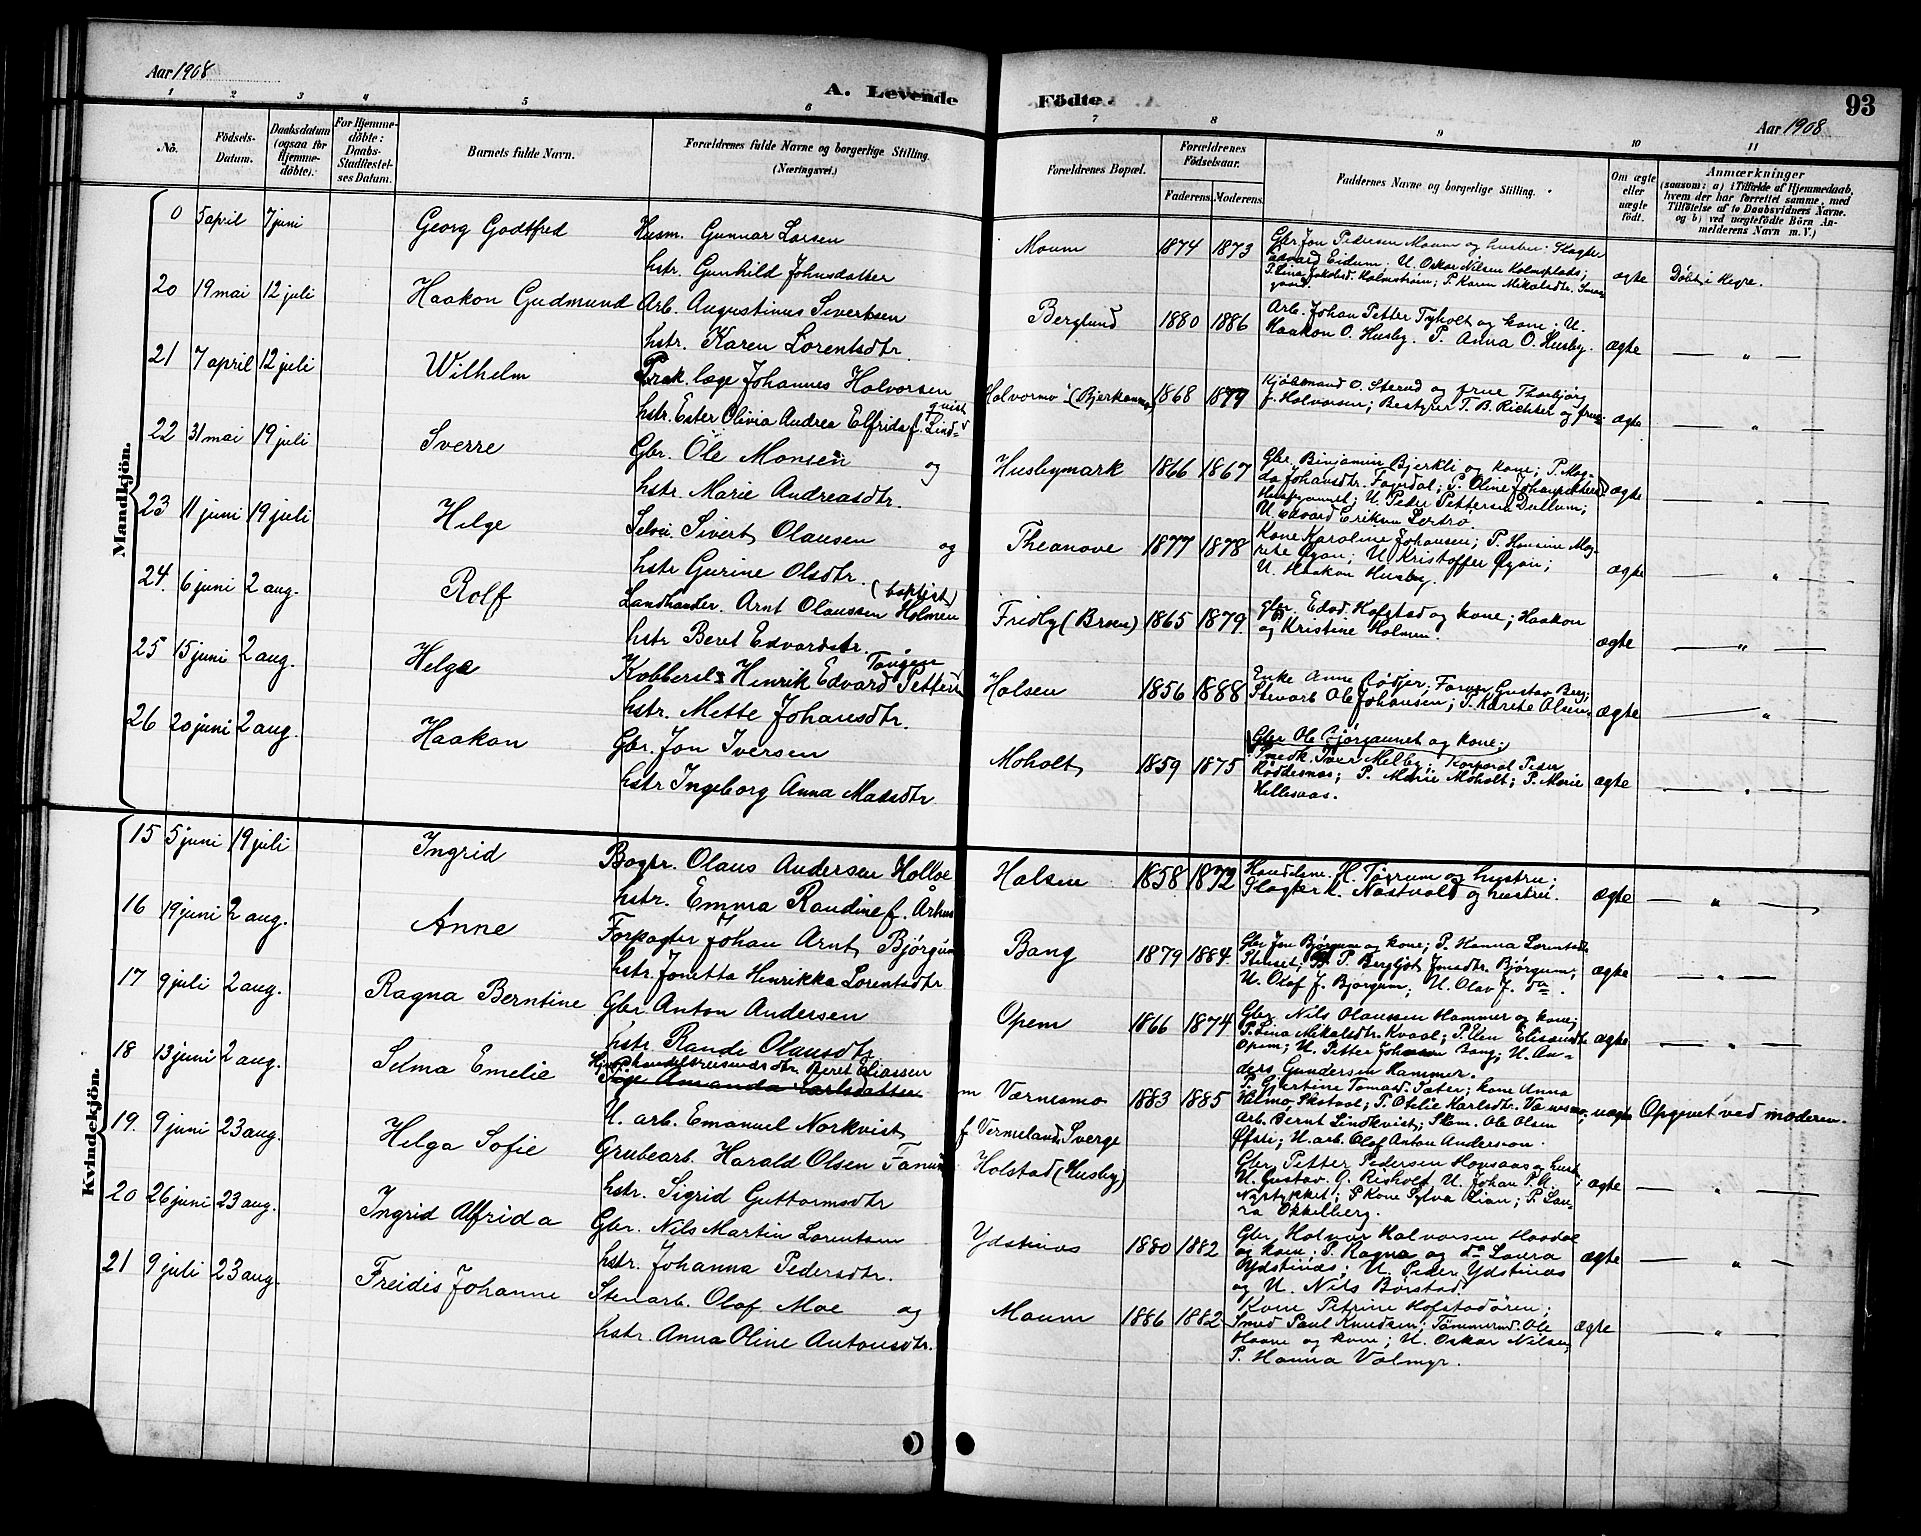 Aar 1908
A. Levende
Födte.
Aar 1908
93
1 2 3 4 5 6 7 8 9 10 11
No.
Födsels-Datum.
Daabsdatum (ogsaa for Hjemme-döbte).
For Hjemme-döbte: Daabs-Stadfæstel-ses Datum.
Barnets fulde Navn.
Forældrenes fulde Navne og borgerlige Stilling. (Næringsvei.)
Forældrenes Bopæl.
Forældrenes Födselsaar.
Faderens. Moderens.
Faddernes Navne og borgerlige Stilling.
Om ægte eller uægte födt.
Anmærkninger
(saasom: a) i Tilfælde af Hjemmedaab,
hvem der har forrettet samme, med
Tilföielse af to Daabsvidners Navne.
og b) ved uægtefödte Börn An-
melderens Navn m. V.)
Mandkjön.
0 5 april 7 juni Georg Godtfred Husm. Gunnar Larsen
hstr. Gunhild Johnsdatter
Moum 1874 1873 Gbr Jon Pedersen Moum og hustru. Slagter
Edvard Eidum. U. Oskar Nilsen Holmsplads;
P. Lina Jakobsd. Holmstrøm; P. Karen Mikalsdtr.
ægte Döbt i Hegre.
20 19 mai 12 juli Haakon Gudmund Arb. Augustinus Sivertsen
hstr. Karen Lorentsdtr.
Berglund 1880 1886 Arb. Johan Petter Tyholt og kone; U.
Haakon O. Husby. P. Anna O. Husby. ægte — " —
21 7 april 12 juli Wilhelm Prak. læge Johannes Halvorsen
hstr. Ester Olivia Andrea Elfrida f. Lind-
quist
Halvormo (Bjerkanmo) 1868 1879 Kjøbmand O. Sterud og frue Thorbjørg
f. Halvorsen; Bestyrer T. B. Richter og frue. ægte — " —
22 31 mai 19 juli Sverre Gbr. Ole Monsen og
hstr. Marie Andreasdtr.
Husbymark 1866 1867 Gbr. Binjamin Bjerkli og kone; P. Mag-
da Johansdtr. Fagerdal; P. Oline
U. Peder Pettersen Dullum;
U. Edvard Eriksen Lertrø. ægte — " —
23 11 juni 19 juli Helge Selvei Sivert Olausen og
hstr Gurine Olsdtr.
Theanove 1877 1878 Kone Karoline Johansen; P. Hansine Mag-
rete Øyan; U. Kristoffer Øyan;
U. Haakon Husby. ægte — " —
24. 6 juni 2 aug. Rolf Landhandler. Arnt Olaussen Holmen
(baptist)
hstr Beret Edvardsdtr.
Fridly (Broen) 1865 1879. gbr. Edvd. Hofstad og kone; Haakon
og Kristine Holmen. ægte — " —
25 15 juni 2 aug. Helge Kobbersl. Henrik Edvard Petters.
Tangen
hstr. Mette Johansdtr.
Halsen 1856 1888 Enke Anne Rödjer; Farver Gustav Berg;
Stenarb Ole Johansen; P. Karete Olsen. ægte — " —
26 20 juni 2 aug. Haakon Gbr. Jon Iversen
hstr Ingeborg Anna Madsdtr
Moholt 1859 1875 Gbr Ole Bjørgaunet og kone;
Smedk. Iver Melby; Korporal Peder
Röddesnes; P. Marie Moholt; P. Marie
Hellesaas. ægte — " —
Kvindekjön.
15 5 juni 19 juli Ingrid Bagtr. Olaus Andersen Holloe
hstr. Emma Randine f. Århus
Halsen 1858 1872 Handelsm. H. Tørrum og hustru;
Slagter L. Nastvold og hustru. ægte — " —
16 19 juni 2 aug. Anne Forpagter Johan Arnt Bjørgum
hstr. Jonetta Henrikka Lorentsdtr
Bang 1879 1884. Gbr Jon Bjørgum og kone; P. Hanna Lorentsdtr
Stuset; P. Bergljot Jonsdtr. Bjørgum;
U. Olaf J. Bjørgum; U. Olav J. do. ægte — " —
17 9 juli 2 aug. Ragna Berntine Gbr. Anton Andersen
hstr Rande Olausdtr
Opem 1866 1874 Gbr. Nils Olaussen Hammer og kone;
P. Lina Mikalsdtr. Kvaal; P. Elen Elisendtr
Opem; U. Petter Johansen Bang; U. An-
ders Gundersen Hammer. ægte — " —
18 13 juni 2 aug. Selma Emelie Beret Eliassen
Pige Amanda Karlsdatter
U. arb. Emanuel Norkvist
Værnesmo 1883 1885
f. Vermeland. Sverge
P. Gjertine Tomasd. Sæter; kone Anna
Halmo, Skatval; P. Otelie Karlsdtr. Værnesmo;
Arb. Bernt Lindkvist; Skom. Ole Olsen
Øfsti; U. arb. Olaf Anton Anderson. uægte Opgivet ved moderen.
19. 9 juni 23 aug. Helga Sofie Grubearb. Harald Olsen
hstr. Sigrid Guttormsdtr
Holstad (Husby) Gbr Petter Pedersen Honsaas og hust.;
U. Gustav A. Risholt. U. Johan P. A.
P Kone Sylva Lian; P. Lau-
ra Okkelberg. ægte — " —
20 26 juni 23 aug. Ingrid Alfrida Gbr. Nils Martin Lorentsen
hstr. Johanna Pedersdtr.
Ydstinæs 1880 1882 Gbr. Halvor Halvorsen
og kone; P. Ragna og do Laura
Ydstinæs; U. Peder Ydstinæs
og U. Nils Børstad. ægte — " —
21 9 juli 23 aug. Freidis Johanne Stenarb. Olaf Moe og
hstr. Anna Oline Antonsdtr.
Moum 1886 1882 Kone Petrine Hofstadøren;
Smed Paul Knudsen; Tømmermd. Ole
Haave og kone; U. Oskar Nilsen;
P. Hanna Valmyr. ægte — " —